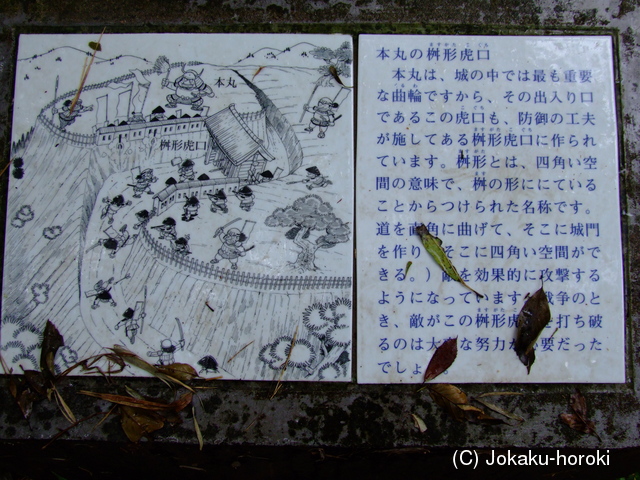 本丸
桝形虎口
本丸の桝形虎口
本丸は、城の中では最も重要
な曲輪ですから、その出入り口
であるこの虎口も、防御の工夫
が施してある桝形虎口に作られ
ています。桝形とは、四角い空
間の意味で、桝の形ににている
ことからつけられた名称です。
道を直角に曲げて、そこに城門
を作り、そこに四角い空間がで
きる。）敵を効果的に攻撃する
ようになっています。戦争のと
き、敵がこの桝形虎口を打ち破
るのは大変な努力が必要だった
でしょ
(C) Jokaku-horoki